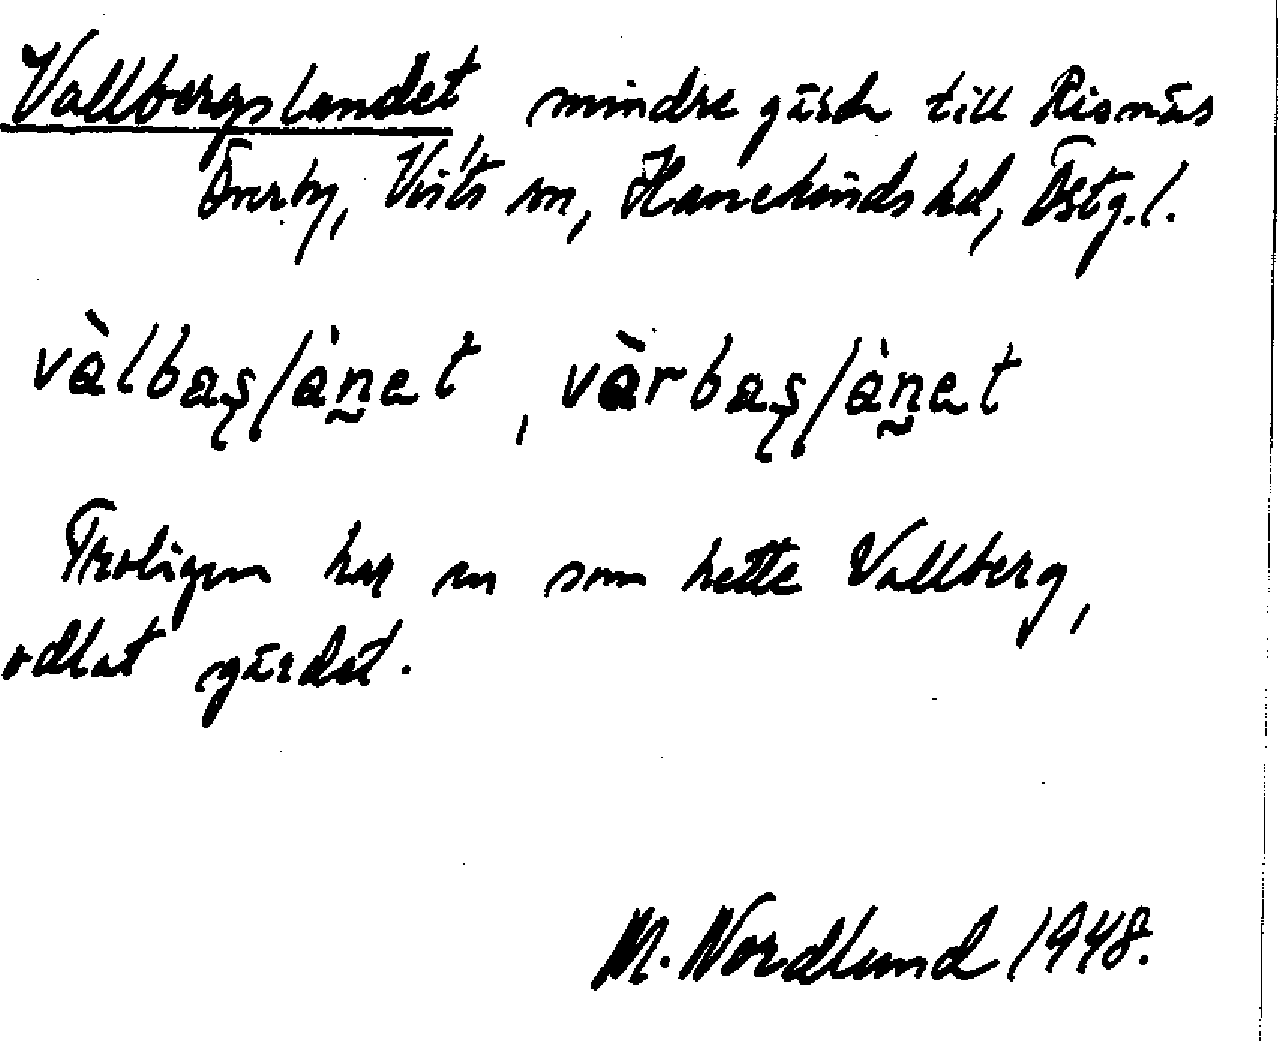 Vallbergslandet, mindre gärde till Risnäs
Överby, Vists sn, Hanekinds hd, Östg. l.
vàlbaʂlàn̰et, vàrbaʂlàn̰et
Troligen har en som hette Vallberg,
odlat gärdet.
M. Nordlund 1948.